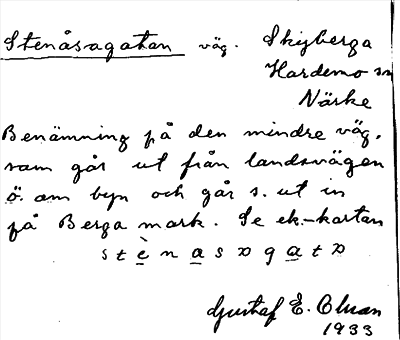 Stenåsagatan väg. Skyberga
Hardemo sn
Närke
Benämning på den mindre väg,
som går ut från landsvägen
ö. om byn och går s. ut in
på Berga mark. Se ek.-kartan
Gustaf E.
1933